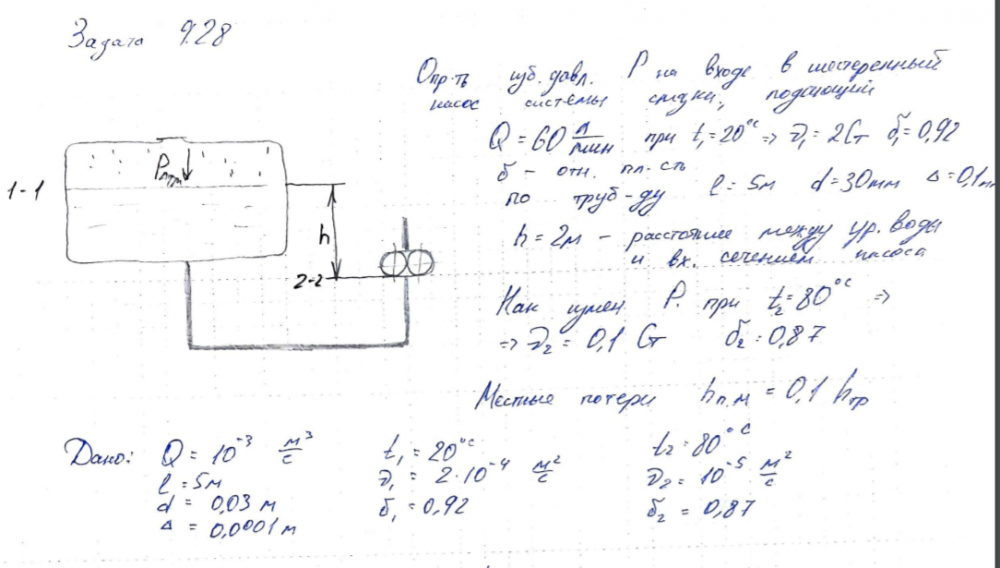 Задача 9.28
Опр-ть изб. давл. P на входе в шестеренный
насос системы смазки, подающий
Q = 60 л/мин при t₁ = 20°C ⇒ ν₁ = 2 Ст δ₁ = 0,92
δ - отн. пл-сть
по труб-ду l = 5м d = 30мм Δ = 0,1мм
h = 2м - расстояние между ур. воды
и вх. сечением насоса
Как измен P. при t₂ = 80°C ⇒
⇒ ν₂ = 0,1 Ст δ₂ = 0,87
Местные потери hп.м = 0,1 hтр
1-1
Pатм
h
2-2
Дано: Q = 10⁻³ м³/с
l = 5м
d = 0,03 м
Δ = 0,0001 м
t₁ = 20°C
ν₁ = 2·10⁻⁴ м²/с
δ₁ = 0,92
t₂ = 80°C
ν₂ = 10⁻⁵ м²/с
δ₂ = 0,87